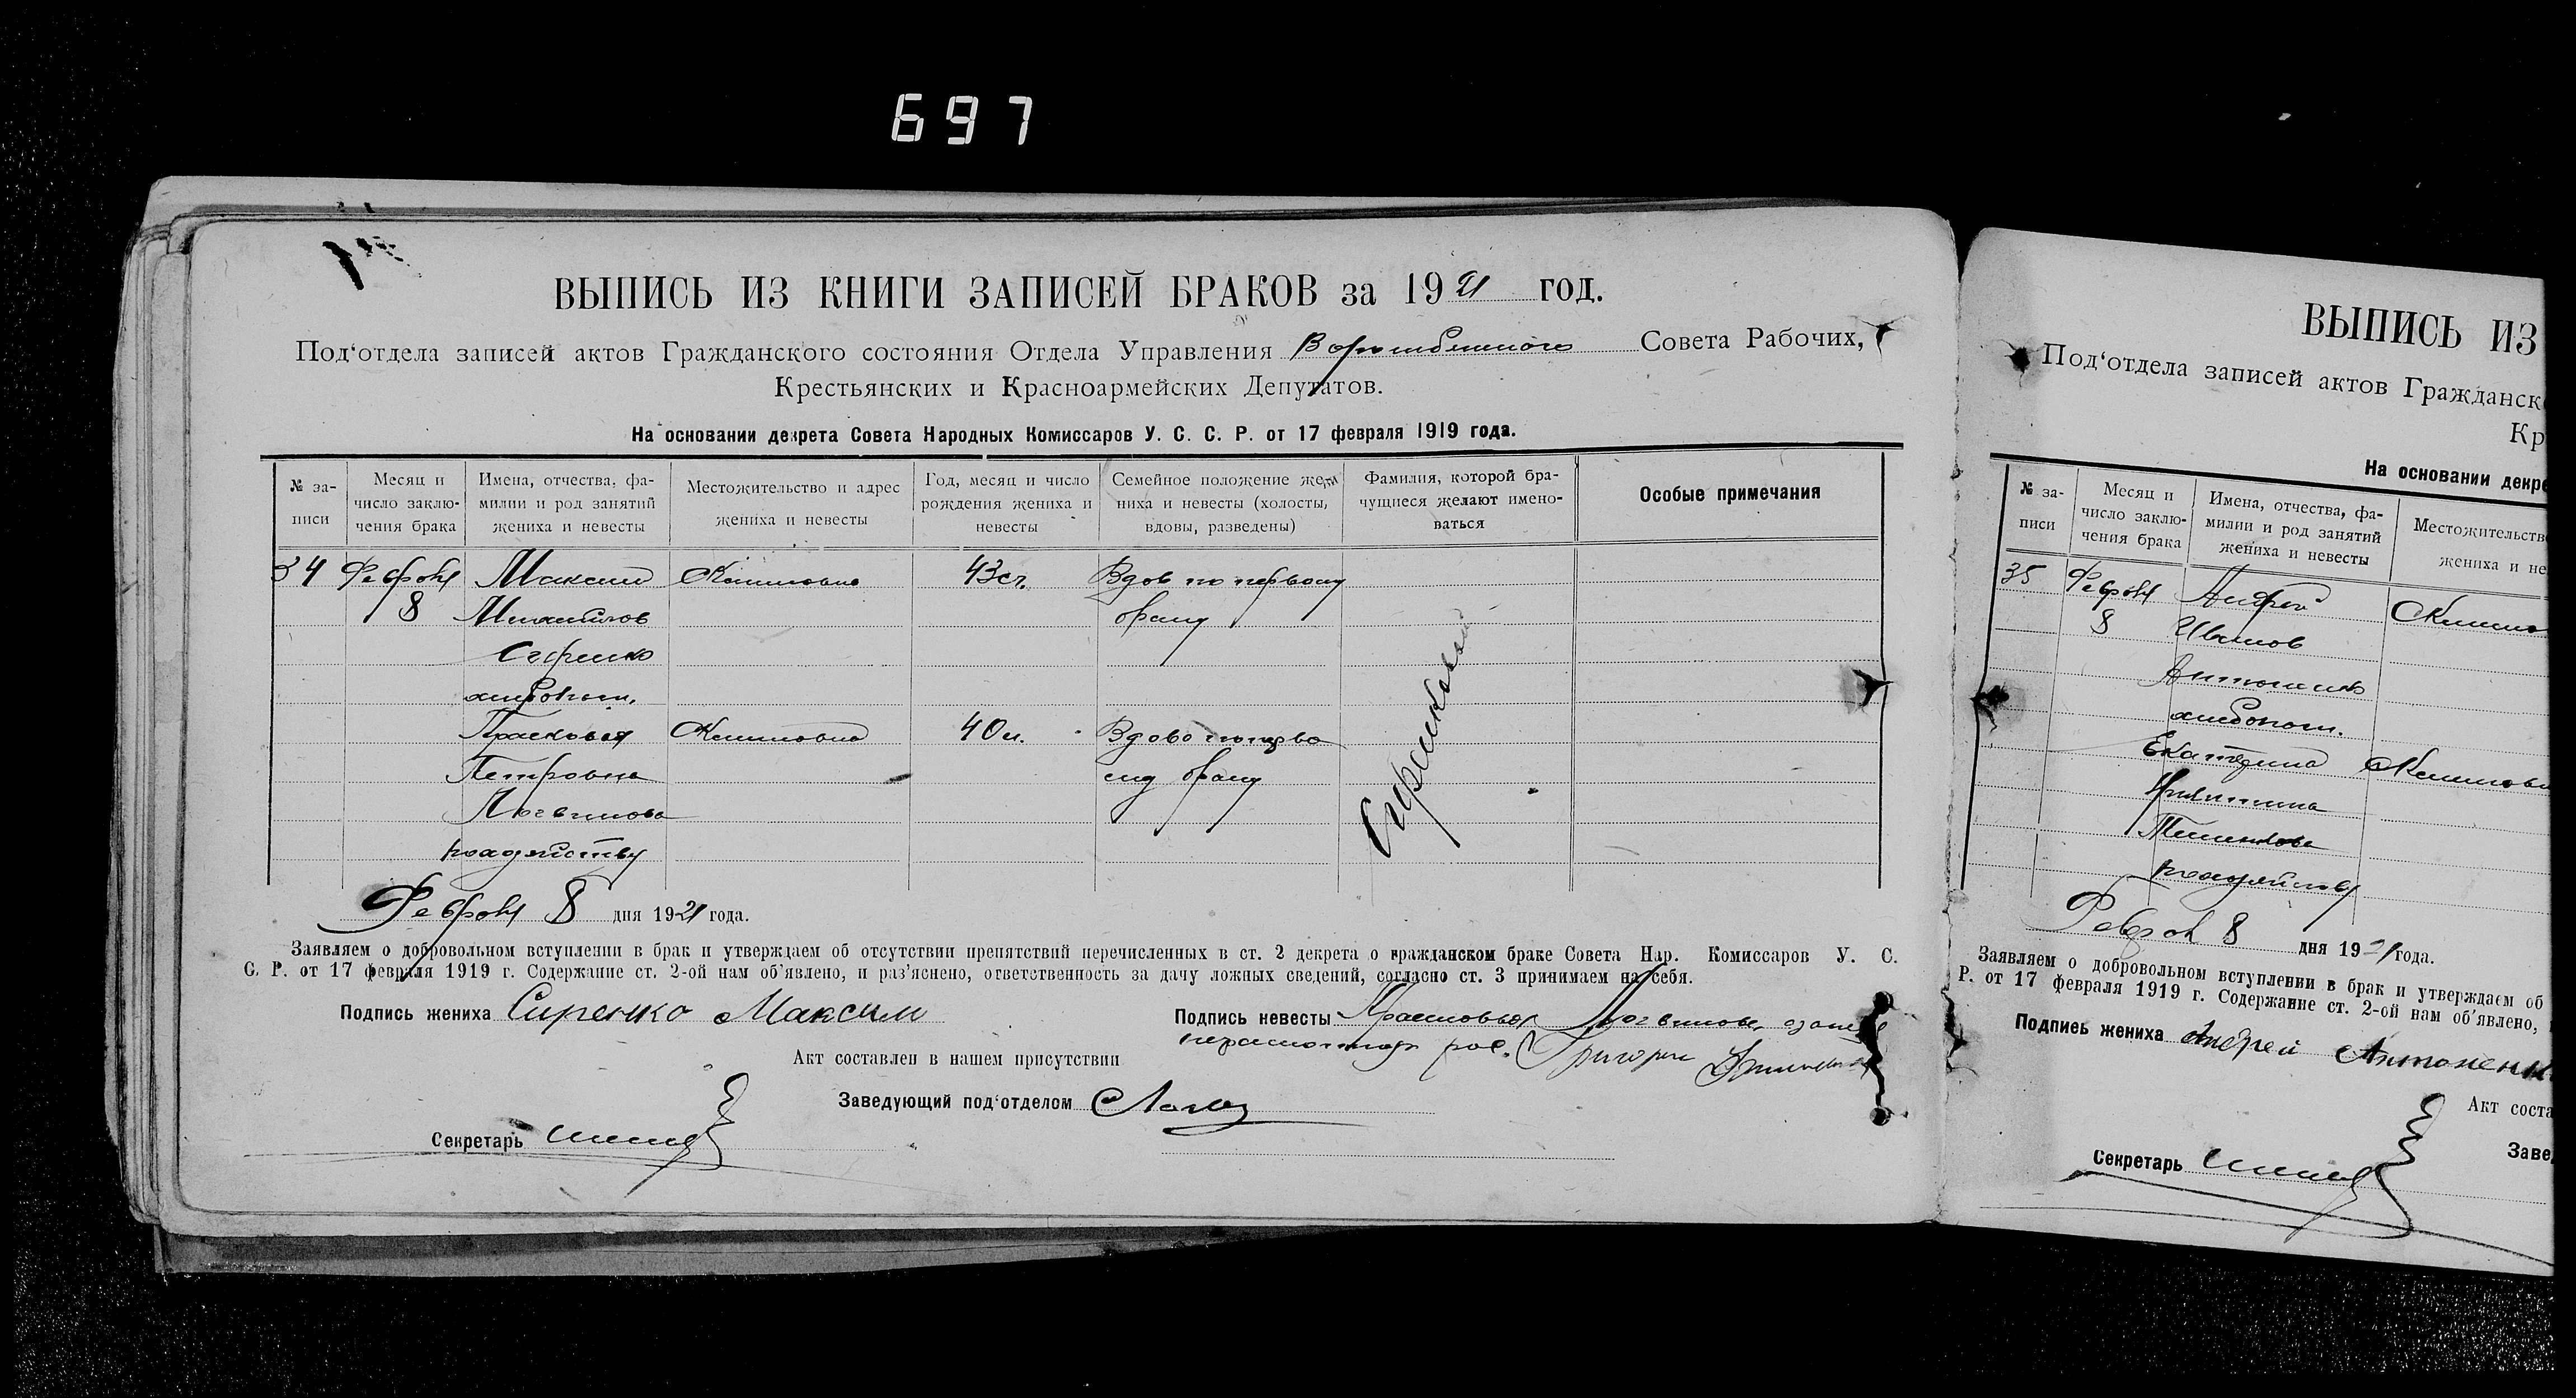 697
ВЫПИСЬ ИЗ КНИГИ ЗАПИСЕЙ БРАКОВ за 1921 год.
Под‘отдела записей актов Гражданского состояния Отдела Управления Совета Рабочих,
Крестьянских и Красноармейских Депутатов.
На основании декрета Совета Народных Комиссаров У. С. С. Р. от 17 февраля 1919 года.
№ за-
писи
Месяц и
число заклю-
чения брака
Имена, отчества, фа-
милии и род занятий
жениха и невесты
Местожительство и адрес
жениха и невесты
Год, месяц и число
рождения жениха и
невесты
Семейное положение же
ниха и невесты (холосты,
вдовы, разведены)
Фамилия, которой бра-
чущиеся желают имено-
ваться
Особые примечания
34 Максим 43
8
Сиренко
Прасковья 40 л.
Петровна
Логвинова
8 дня 1921 года.
Заявляем о добровольном вступлении в брак и утверждаем об отсутствии препятствий перечисленных в ст. 2 декрета о гражданском браке Совета Нар. Комиссаров У. С.
С. Р. от 17 февраля 1919 г. Содержание ст. 2-ой нам об’явлено, и раз’яснено, ответственность за дачу ложных сведений, согласно ст. 3 принимаем на себя.
Подпись жениха Сиренко Максим
Подпись невесты Прасковья Логвинова
Григорий
Акт составлен в нашем присутствии
Заведующий под‘отделом
Секретарь
ВЫПИСЬ ИЗ
Под‘отдела записей актов Гражданск
Кр
На основании декре
№ за-
писи
Месяц и
число заклю-
чения брака
Имена, отчества, фа-
милии и род занятий
жениха и невесты
Местожительств
жениха и не
35 Андрей
8 Иванов
Антоненко
Екатерина
8 дня 1921 года.
Заявляем о добровольном вступлении в брак и утверждаем об
Р. от 17 февраля 1919 г. Содержание ст. 2-ой нам об’явлено,
Подпись жениха Андрей Антоненк
Акт соста
Заве
Секретарь